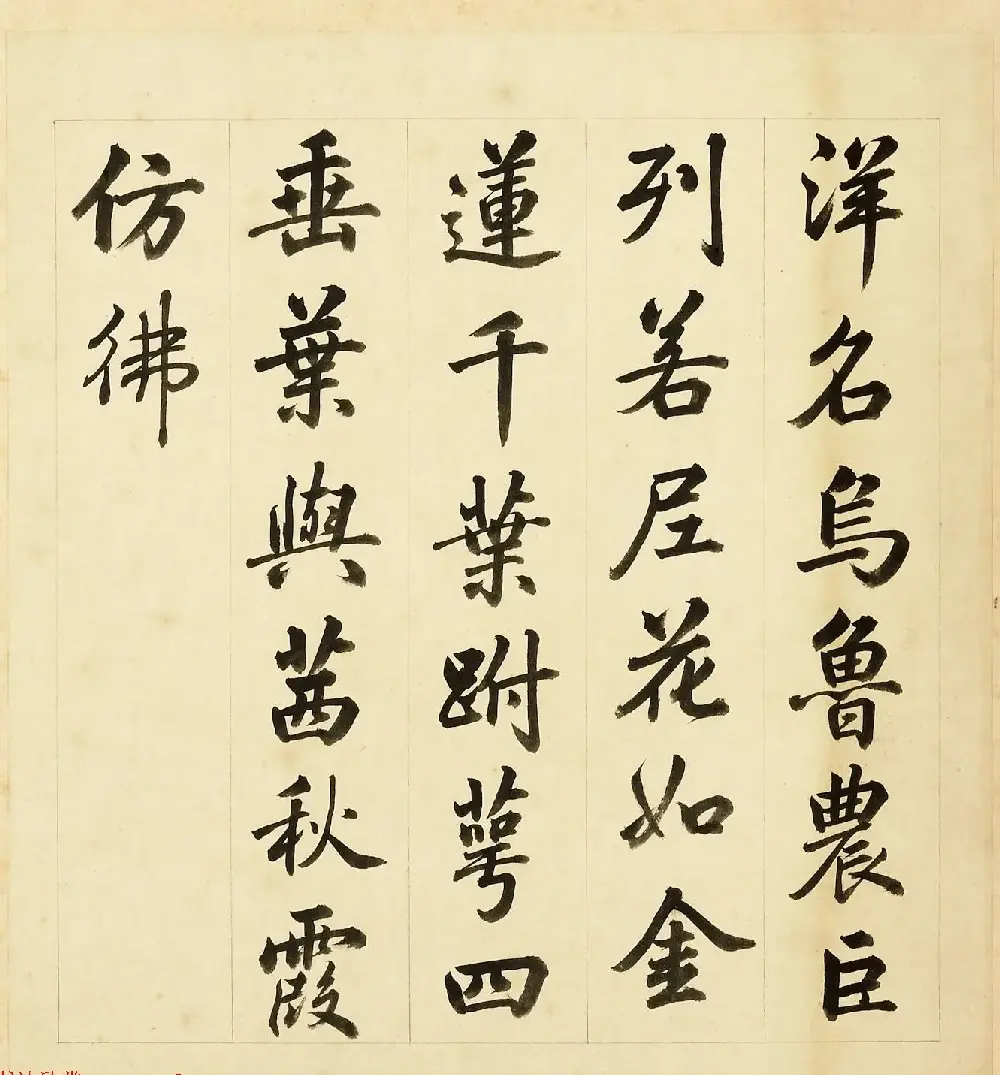 洋名烏魯農臣
列若𡰱花如金
蓮千葉跗萼四
垂葉與茜秋霞
仿彿